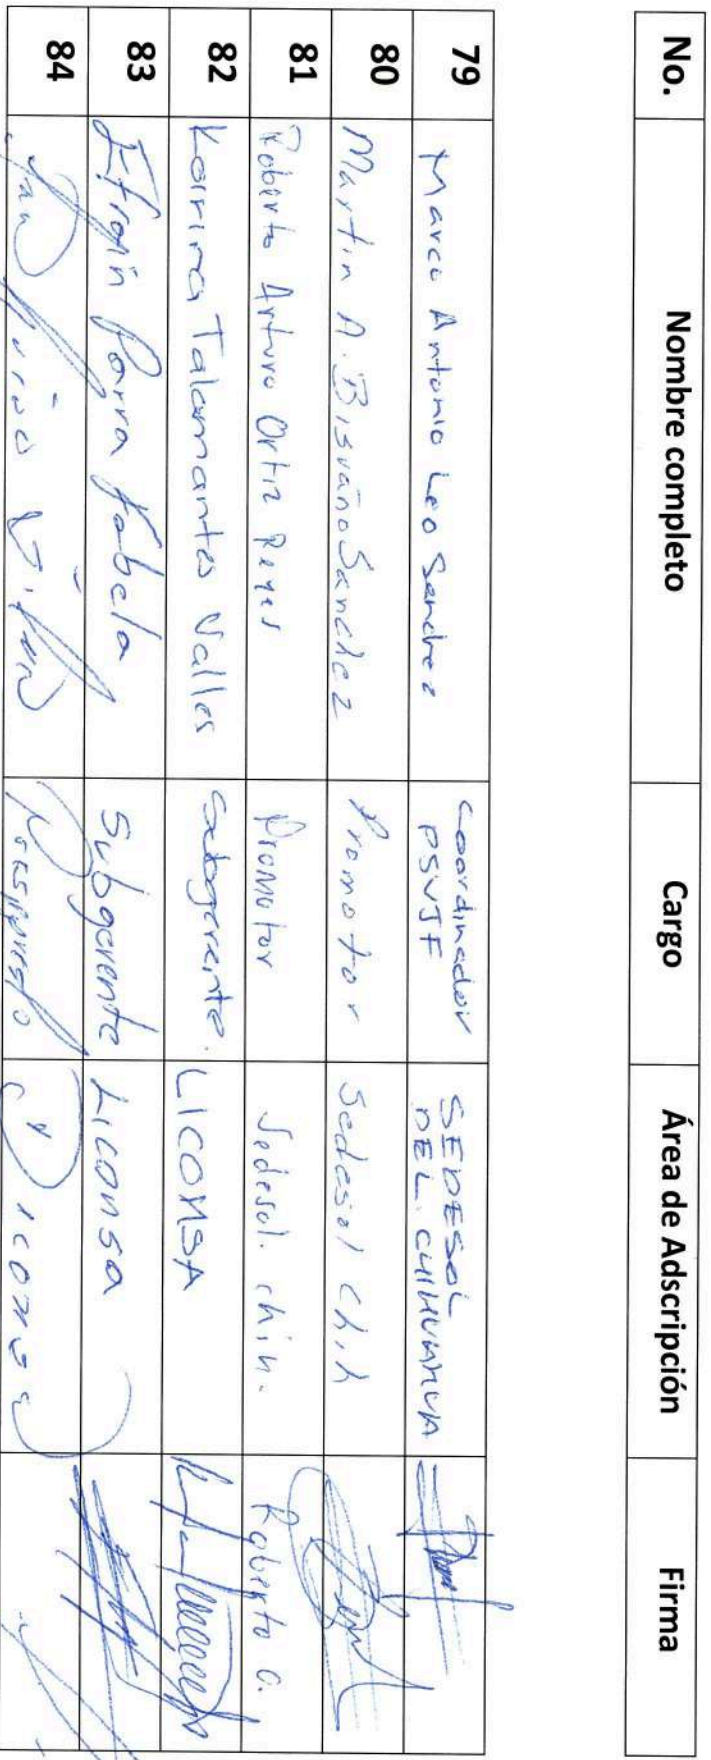 No. Nombre completo Cargo Área de Adscripción Firma
79 Marco Antonio Leo Sanchez Coordinador PSVJF SEDESOL DEL. CHIHUAHUA
80 Martin A. Sanchez Promotor Sedesol Chih
81 Roberto Arturo Ortiz Reyes Promotor Sedesol. chih. Roberto O.
82 Karina Talamantes Valles Subgerente. LICONSA
83 Efraín Parra Fabela Subgerente Liconsa
84 Liconsa